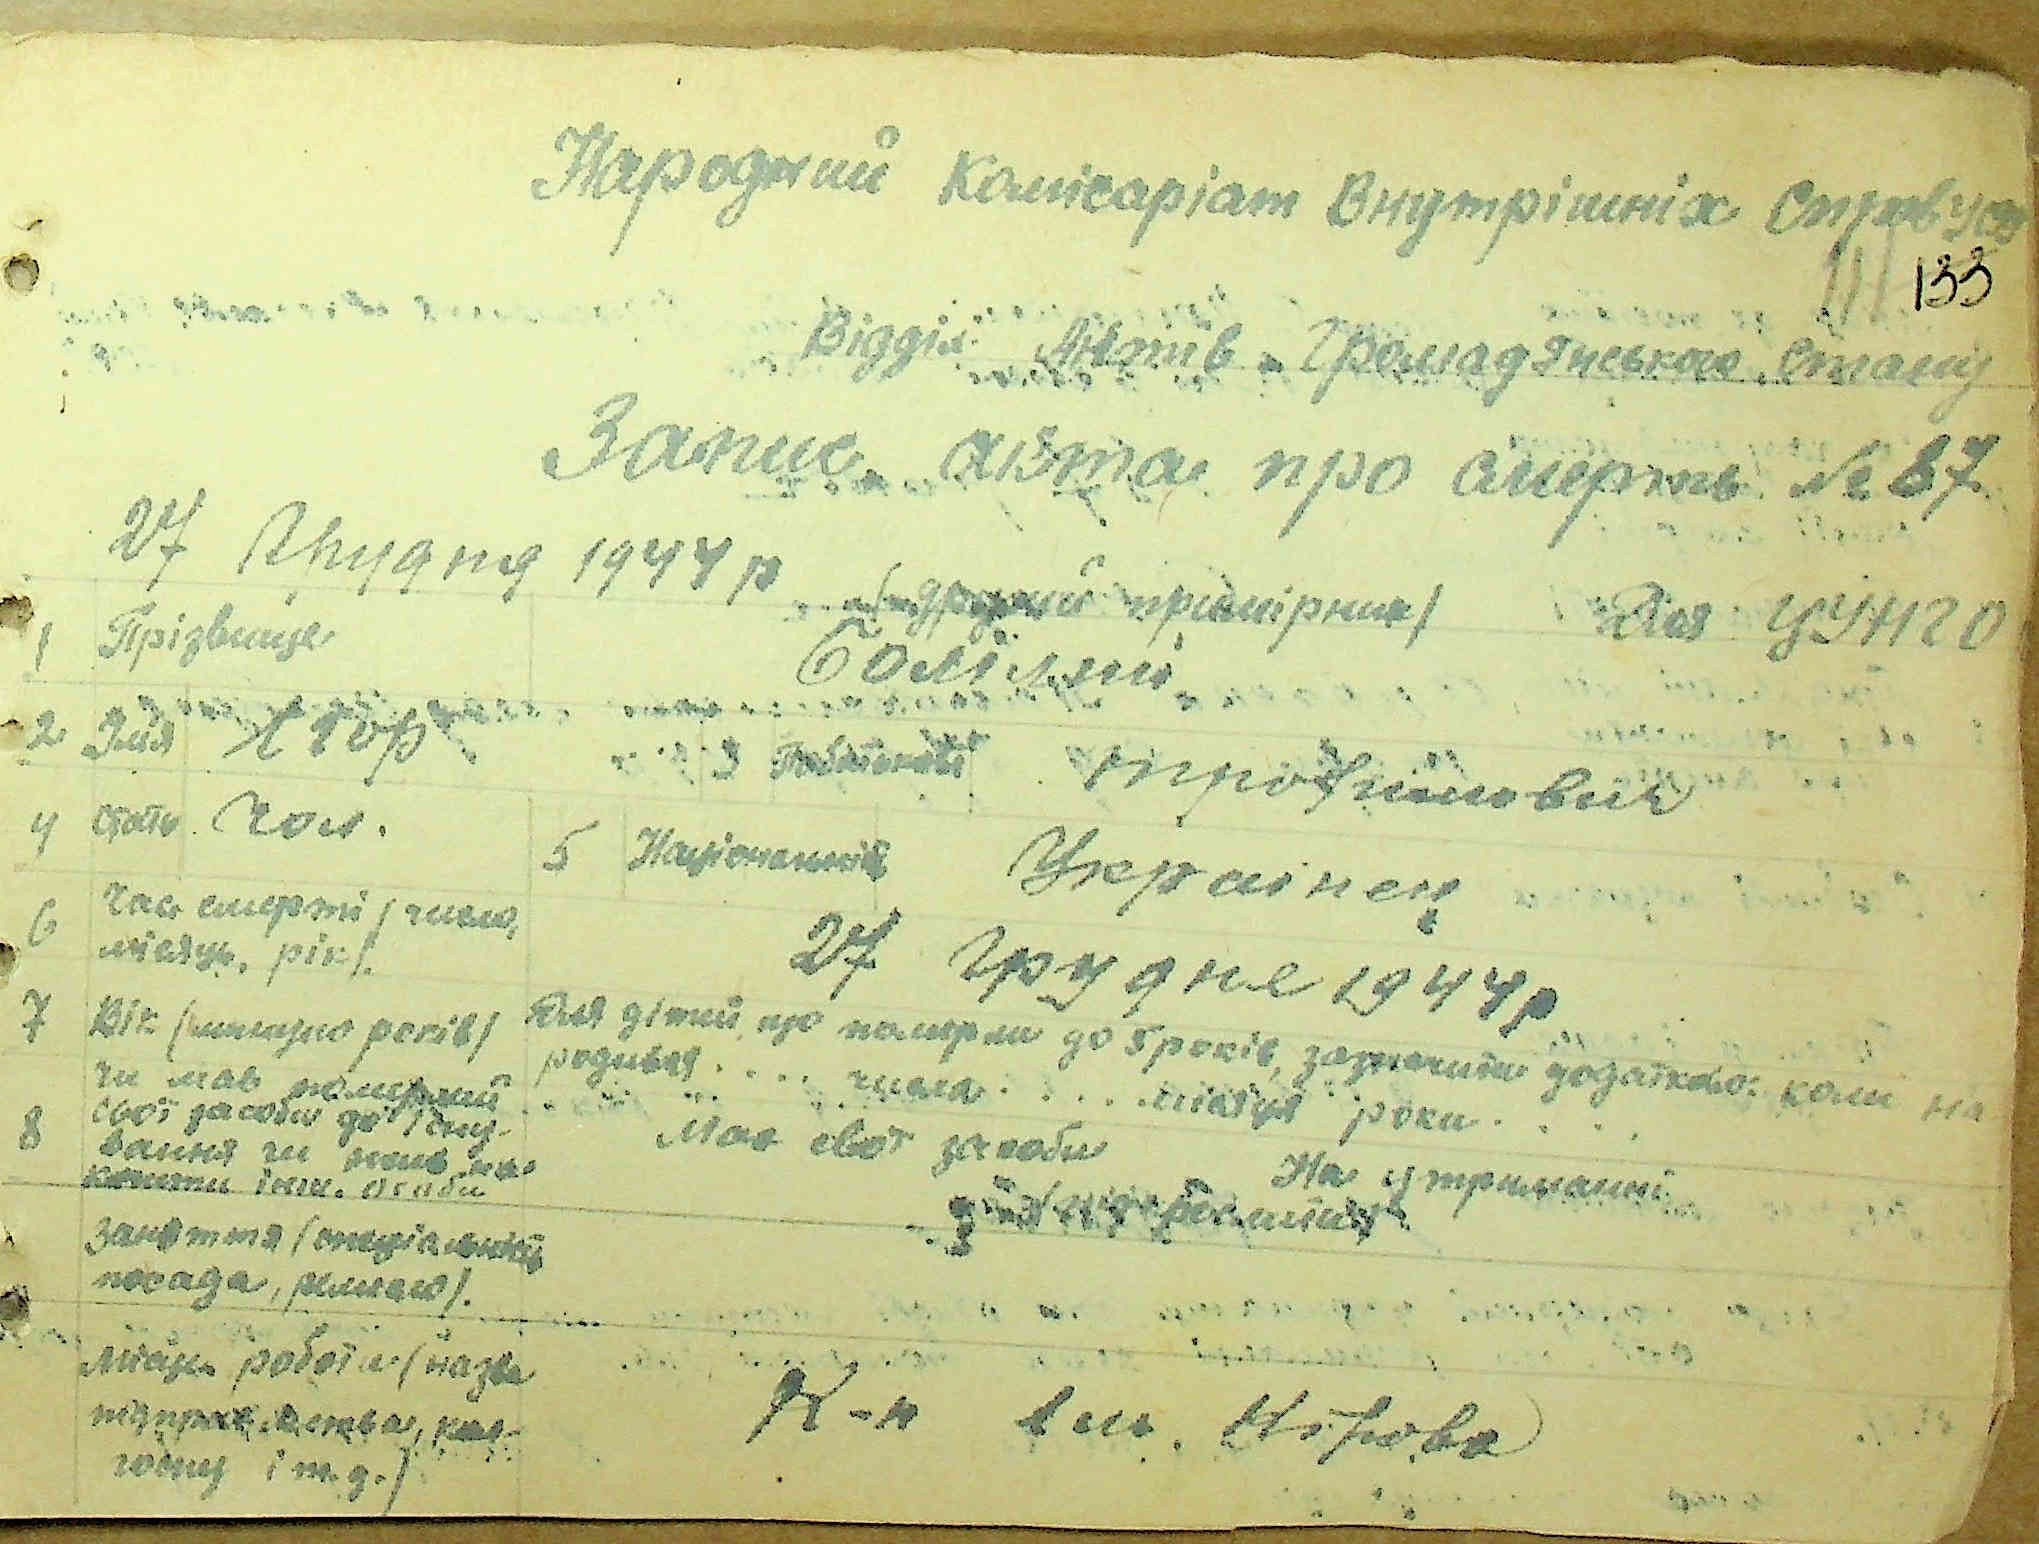 Народний Комісаріат Внутрішніх Справ УССР
133
Відділ Актів Громадянського Стану
Запис акта про смерть № 87
27 Грудня 1944 р
/другий примірник/ Для ЦУНГО
1 Прізвище
2 Імя 3 Побатькові Трофимович
4 Стать Чол. 5 Національність Українец
6 Час смерті / число, місяць, рік/. 27 Грудня 1944 р
7 Вік /минуло років/ Для дітей, що померли до 5 років, зазначити додатково: коли на
родився .... числа .... місяця року ....
8 Чи мав померлий
свої засоби до існу-
вання чи жив на
кошти інш. особи
Мав свої засоби На утриманні
/підкреслити/
Заняття / спеціальність
посада, ремесло/.
Місце роботи / назва
підприємства, кол-
госпу і т.д./
К-п ім. Кірова